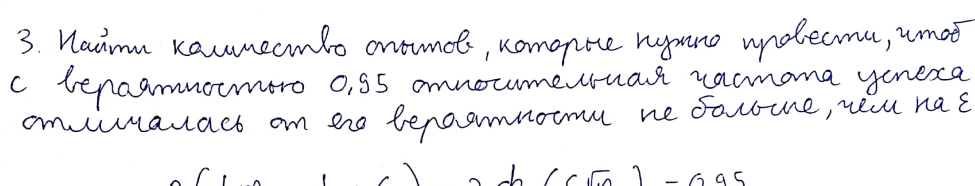 3. Найти количество опытов, которые нужно провести, чтоб
с вероятностью 0,95 относительная частота успеха
отличалась от его вероятности не больше, чем на ε
= 0,95